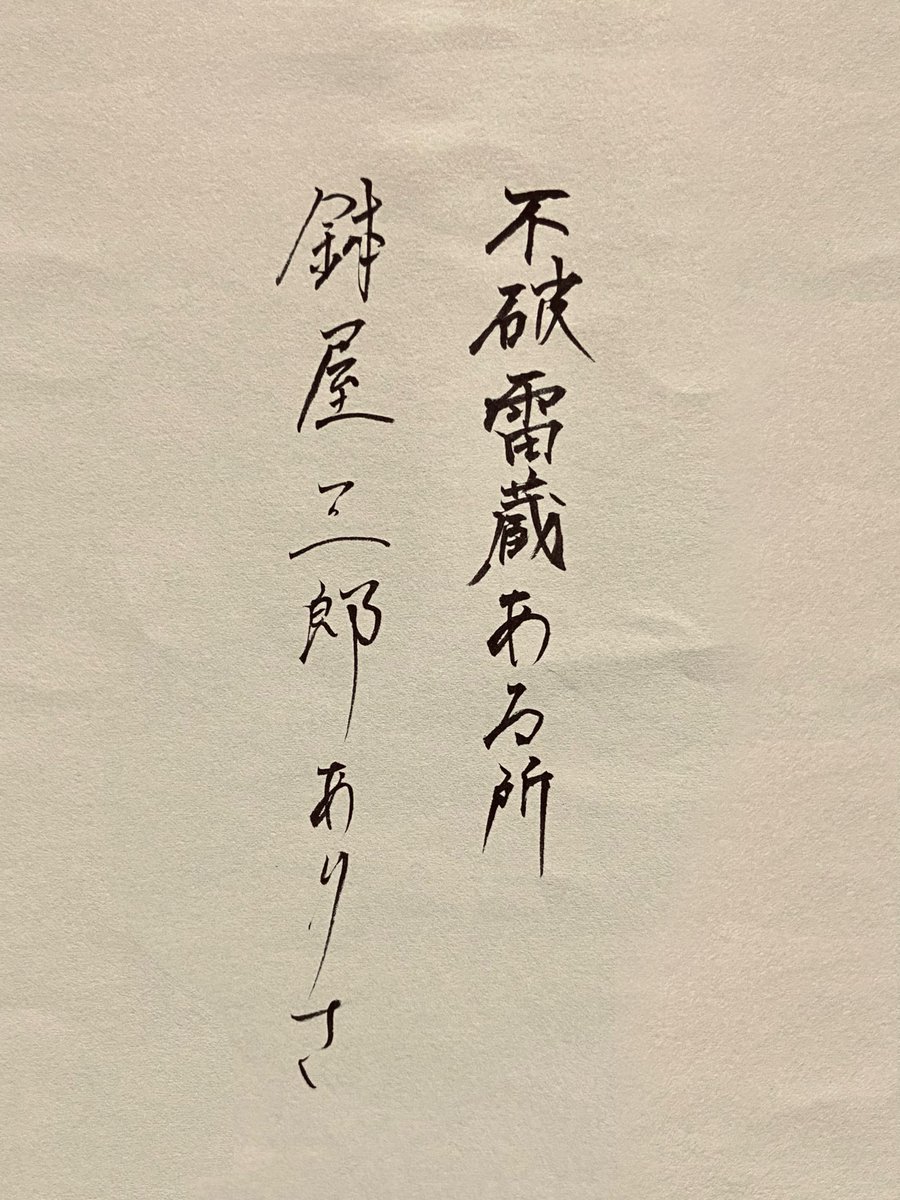 不破雷蔵ある所
鉢屋三郎ありさ